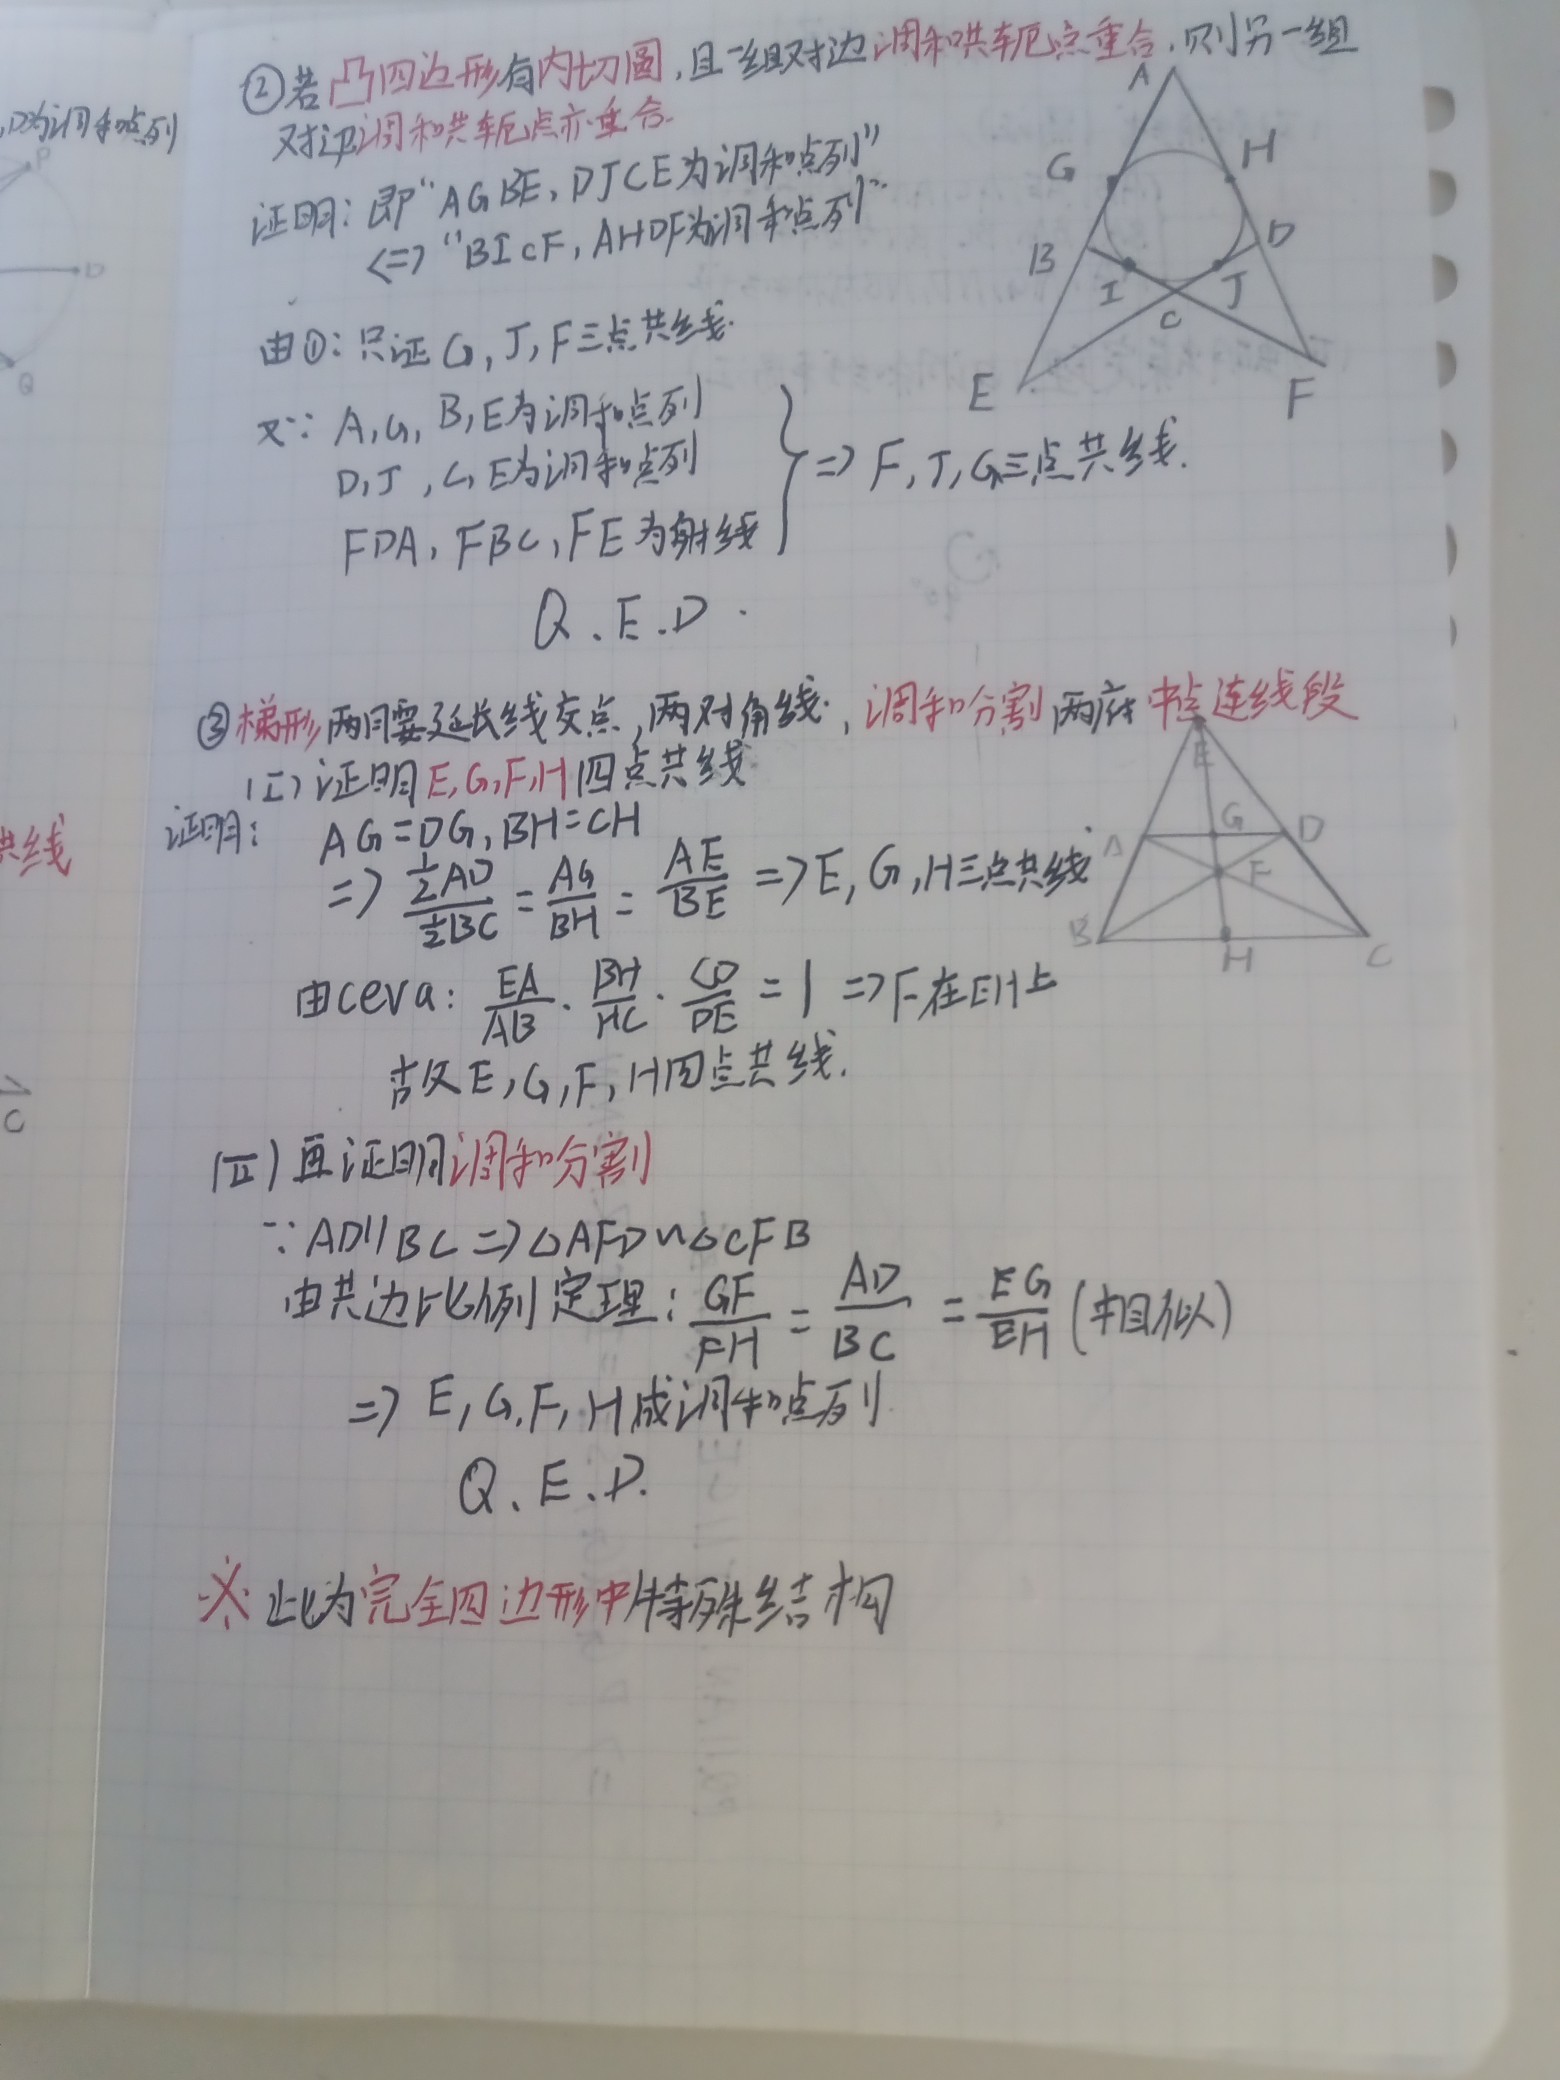 ②若凸四边形有内切圆,且一组对边调和共轭点重合,则另一组
对边调和共轭点亦重合.
证明: 即"AGBE, DJCE为调和点列"
<=> "BICF, AHDF为调和点列".
由①: 只证G, J, F三点共线.
又∵ A, G, B, E为调和点列
D, J, C, E为调和点列
FDA, FBC, FE为射线
=> F, J, G三点共线.
Q.E.D.
A
G
H
B
D
I
J
C
E
F
③梯形两腰延长线交点,两对角线,调和分割两底中点连线段
(I)证明E,G,F,H四点共线
证明: AG=DG, BH=CH
=> ½AD/½BC = AG/BH = AE/BE => E, G, H三点共线
由ceva: EA/AB · BH/HC · CD/DE = 1 => F在EH上
故E, G, F, H四点共线.
E
A
G
D
F
B
H
C
(II)再证明调和分割
∵AD∥BC => △AFD∽△CFB
由共边比例定理: GF/FH = AD/BC = EG/EH (相似)
=> E, G, F, H成调和点列
Q.E.D.
※此为完全四边形中特殊结构
D为调和点列
P
D
Q
共线
C